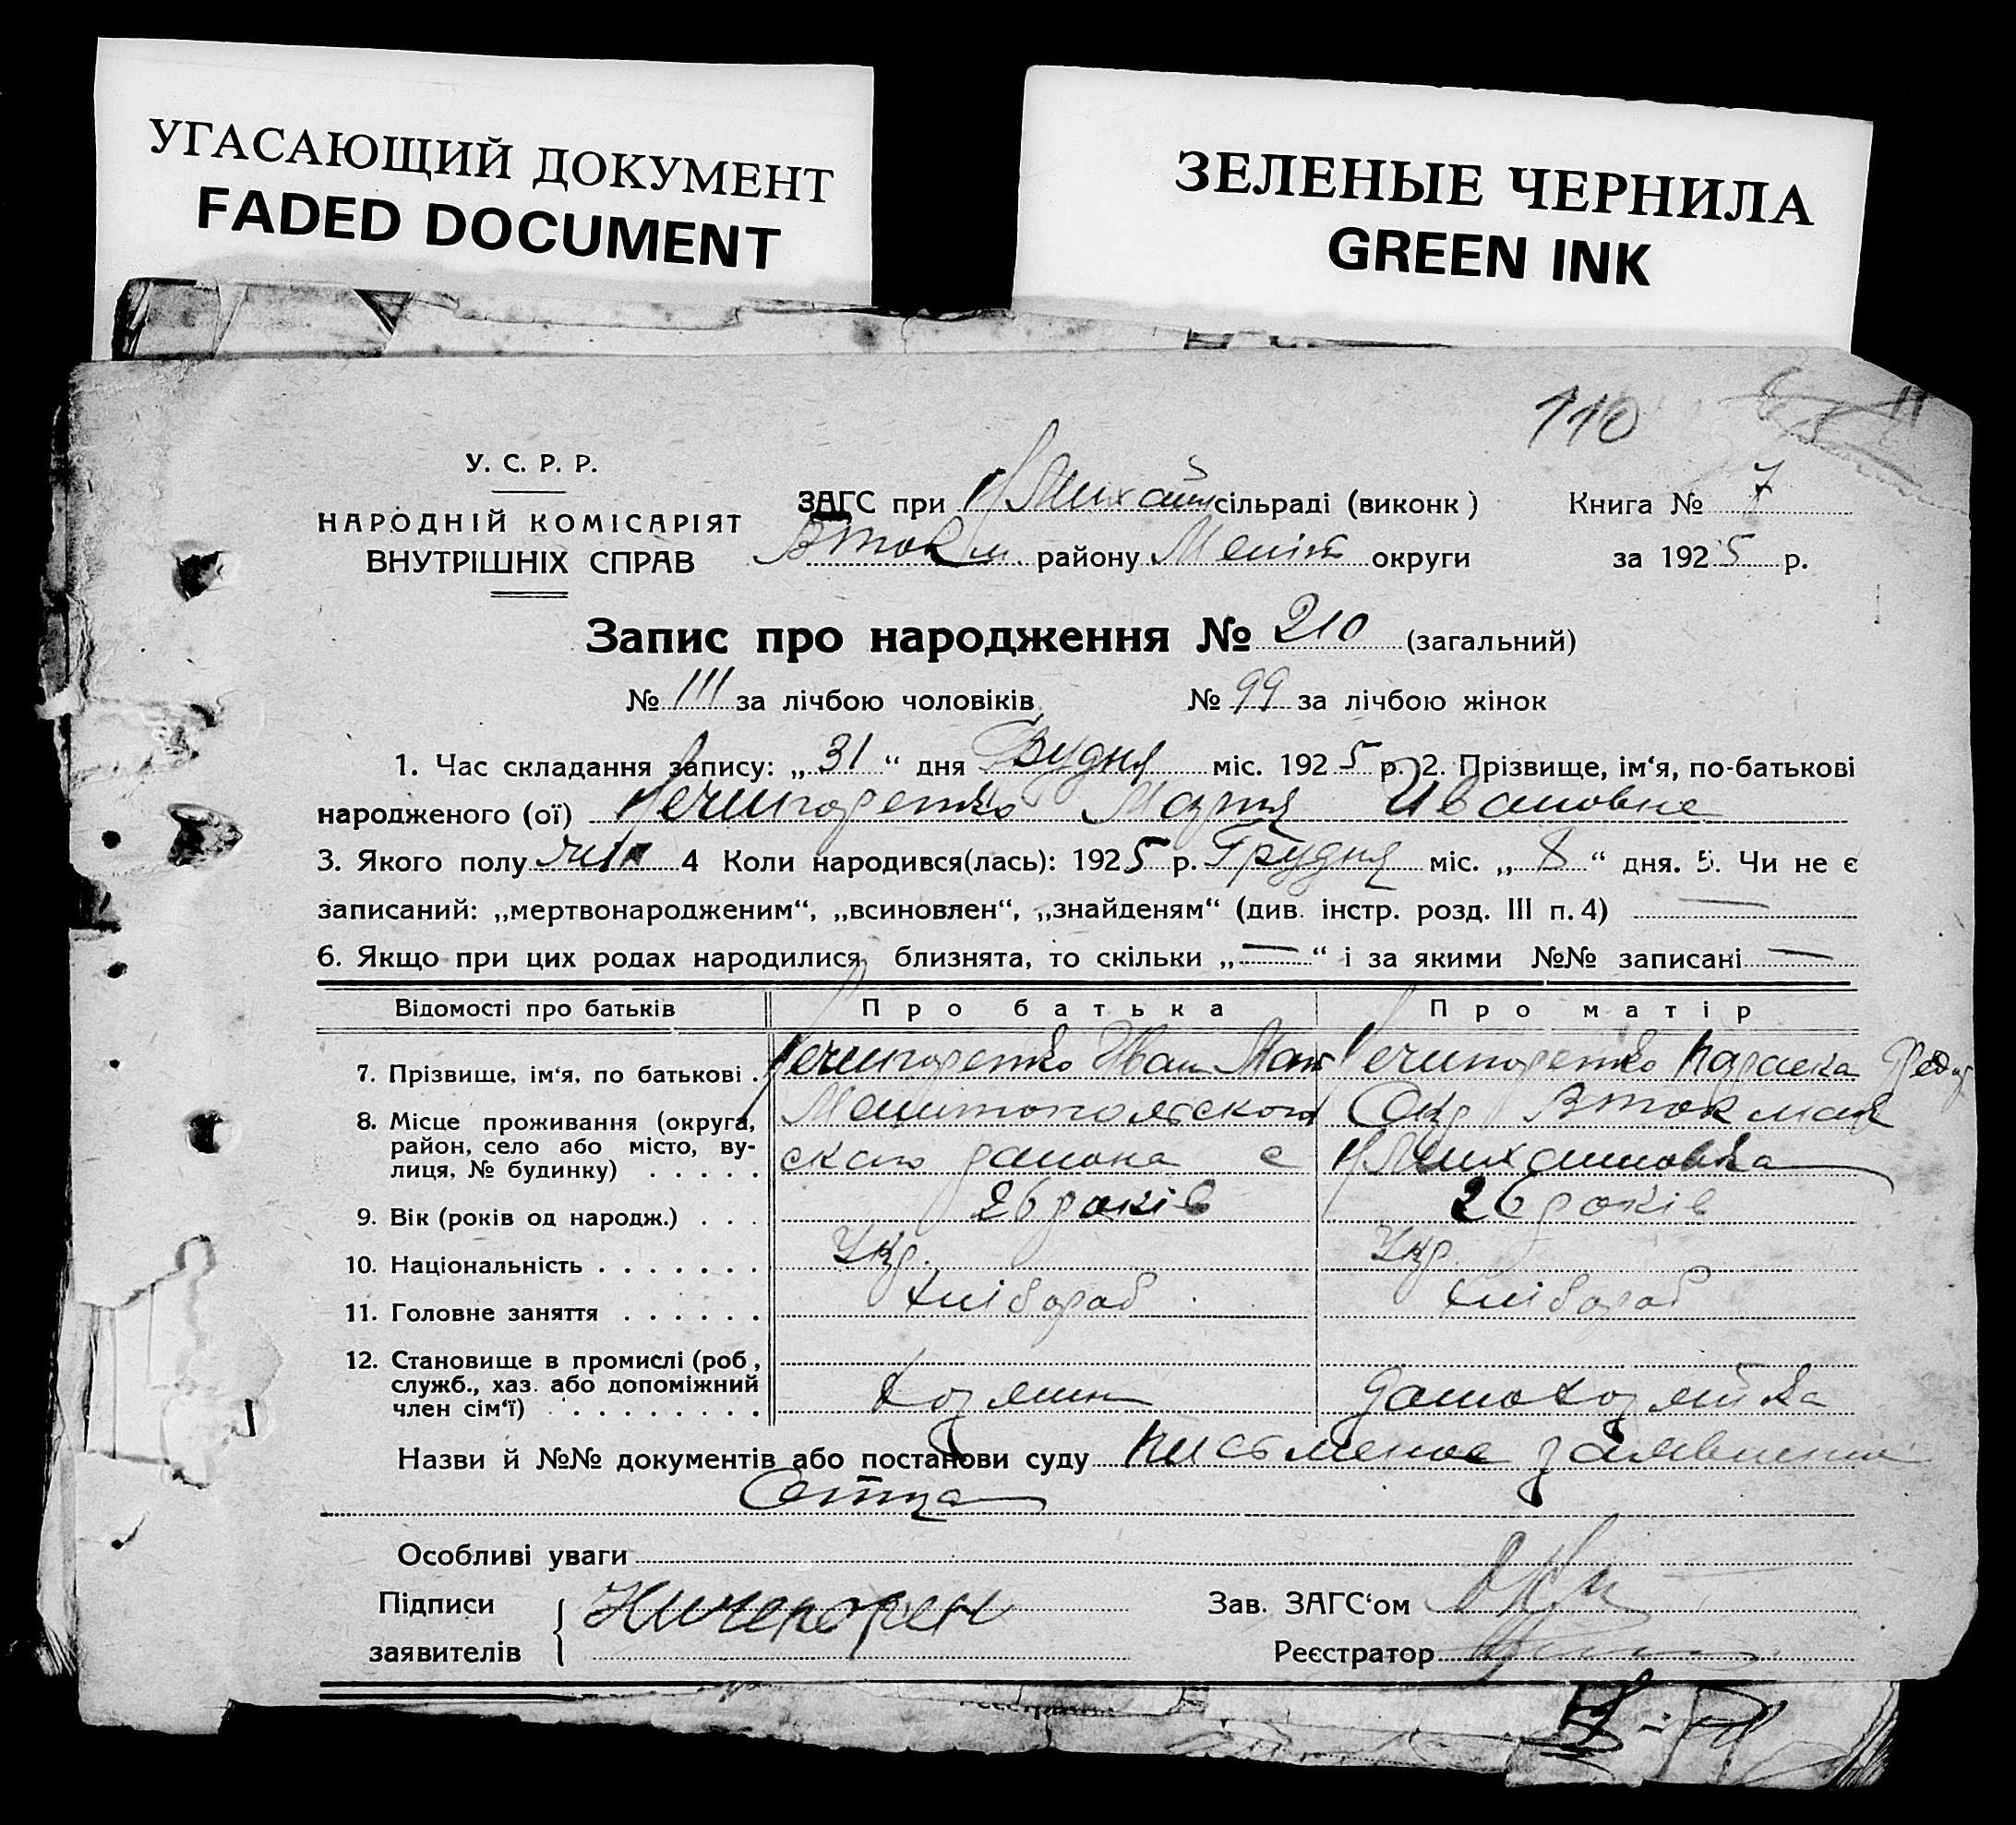 УГАСАЮЩИЙ ДОКУМЕНТ
FADED DOCUMENT
ЗЕЛЕНЫЕ ЧЕРНИЛА
GREEN INK
110
У. С. Р. Р.
НАРОДНІЙ КОМІСАРІЯТ
ВНУТРІШНІХ СПРАВ
ЗАГС при Н Михайл сільраді (виконк)
ВТокм. району Меліт округи
Книга № 7
за 1925 р.
Запис про народження № 210 (загальний)
№ 111 за лічбою чоловіків № 99 за лічбою жінок
1. Час складання запису: „31“ дня Грудня міс. 1925 р. 2. Прізвище, ім‘я, по-батькові
народженого (ої) Ничипоренко Мария Ивановна
3. Якого полу 4 Коли народився(лась): 1925 р. Грудня міс. „8“ дня. 5. Чи не є
записаний: „мертвонародженим“, „всиновлен“, „знайденям“ (див. інстр. розд. III п. 4) —
6. Якщо при цих родах народилися близнята, то скільки „—“ і за якими №№ записані —
Відомості про батьків Про батька Про матір
7. Прізвище, ім‘я, по батькові . Ничипоренко Иван Ничипоренко Параска Федор
8. Місце проживання (округа, Мелитопольского Окр ВТокмак
район, село або місто, ву- ского района с Н Михайловка
лиця, № будинку) . . . . .
9. Вік (років од народж.) . . . 26 років 26 років
10. Національність . . . . . . . Укр. Укр.
11. Головне заняття . . . . . . Хлібороб Хлібороб
12. Становище в промислі (роб,
служб., хаз. або допоміжний Хозяин Домохозяйка
член сім‘ї) . . . . . . . . .
Назви й №№ документів або постанови суду Письменое заявление
Отца
Особливі уваги
Підписи
заявителів
Зав. ЗАГС‘ом
Реєстратор